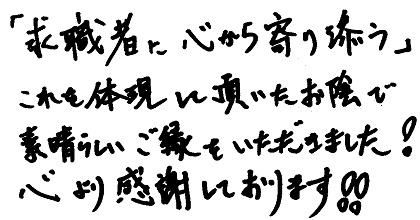 「求職者に心から寄り添う」
これを体現して頂いたお陰で
素晴らしいご縁をいただきました!
心より感謝しております!!